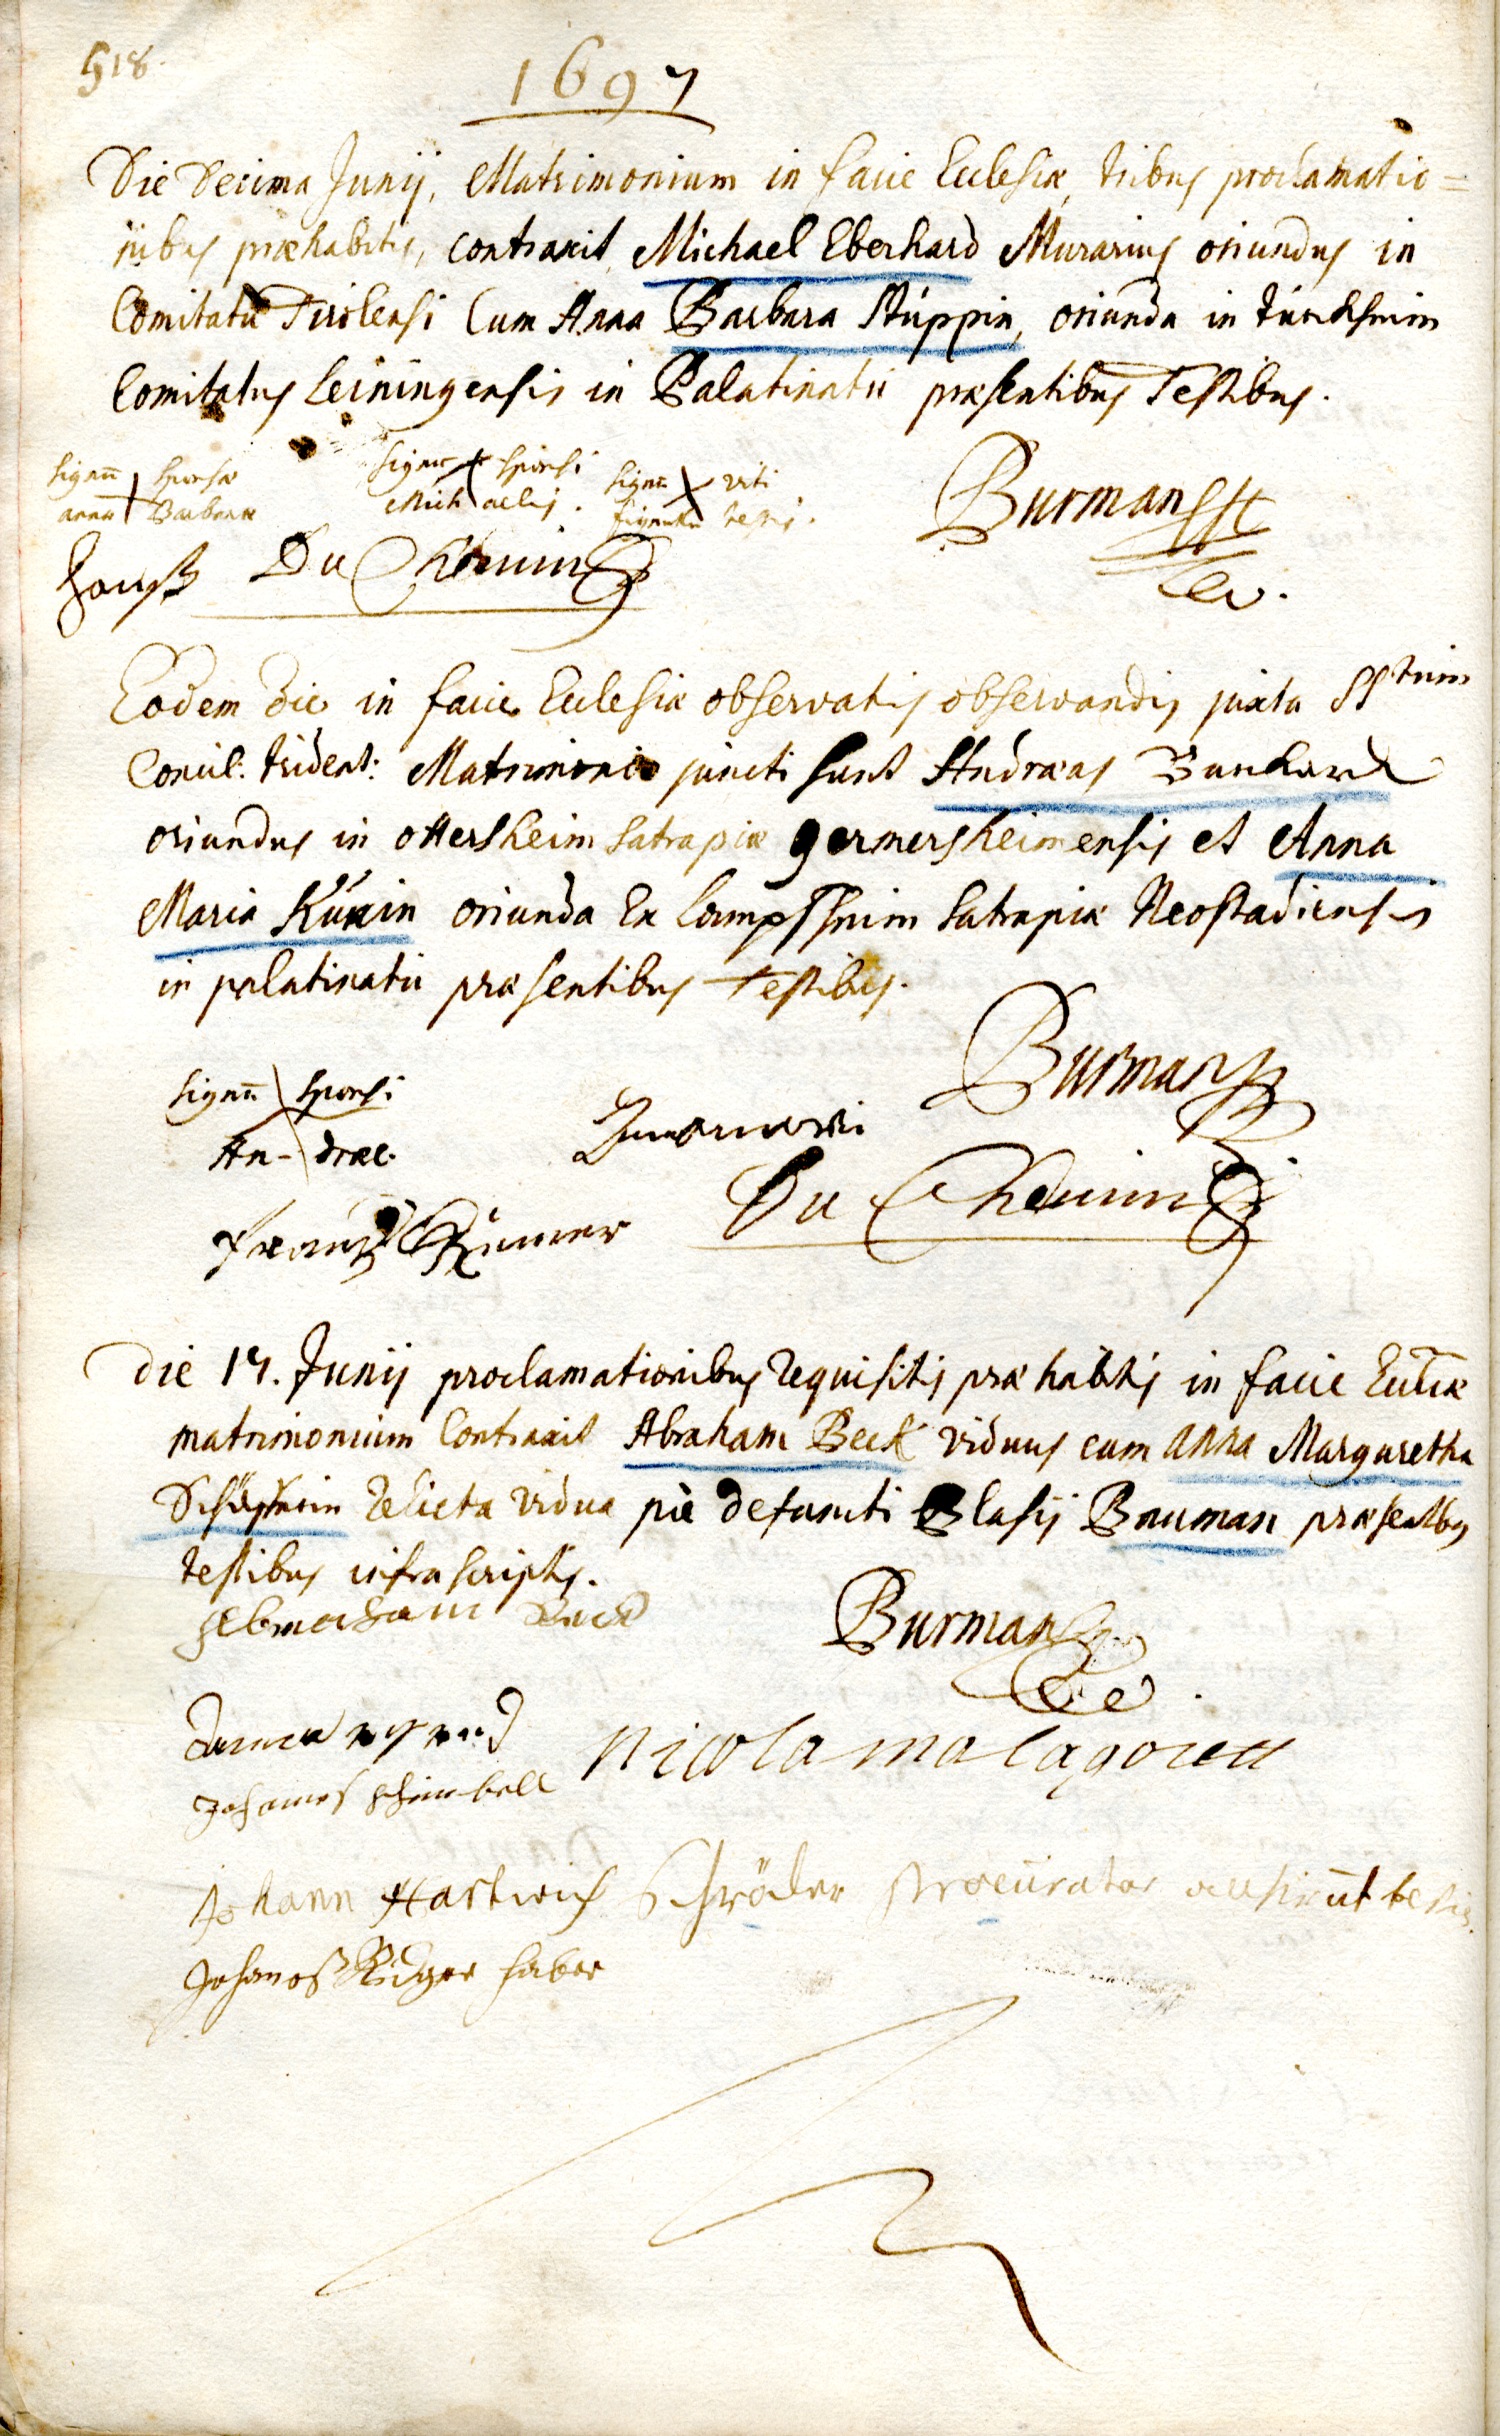 518.
1697
Die Decima Junij, Matrimonium in facie Ecclesiæ, tribus proclamatio=
nibus præhabitis, contraxit Michael Eberhard Murarius oriundus in
Comitatu Tirolensi Cum Anna Barbara Stüppin, oriunda in
Comitatus Leiningensis in Palatinatu præsentibus Testibus.
signū sponsæ
annæ Barbaræ
signū sponsi
Michaelis.
signū viti
testis.
Burman
Du Chemin
Eodem Die in facie Ecclesiæ observatis observandis juxta SStum
Concil: trident: Matrimonio juncti sunt Andræas Bunhard
oriundus in ottersheim satrapiæ germersheimensis et Anna
Maria Kuxin oriunda Ex Lampssheim Satrapiæ Neostadiensis
in palatinatu præsentibus Testibus.
Burman
signū sponsi
An-dreæ.
Du Chemin
Die 17. Junij proclamationibus requisitis præhabitis in facie Eccliæ
matrimonium Contraxit Abraham Beck viduus cum Anna Margaretha
relicta vidua piè defuncti Blasij Bauman præsentibus
testibus infrascriptis.
Abraham Beck
Burman
Nicola malagoreu
Johannes
Johann Hartwich Schröder procurator testis.
Johannes Rüdger faber